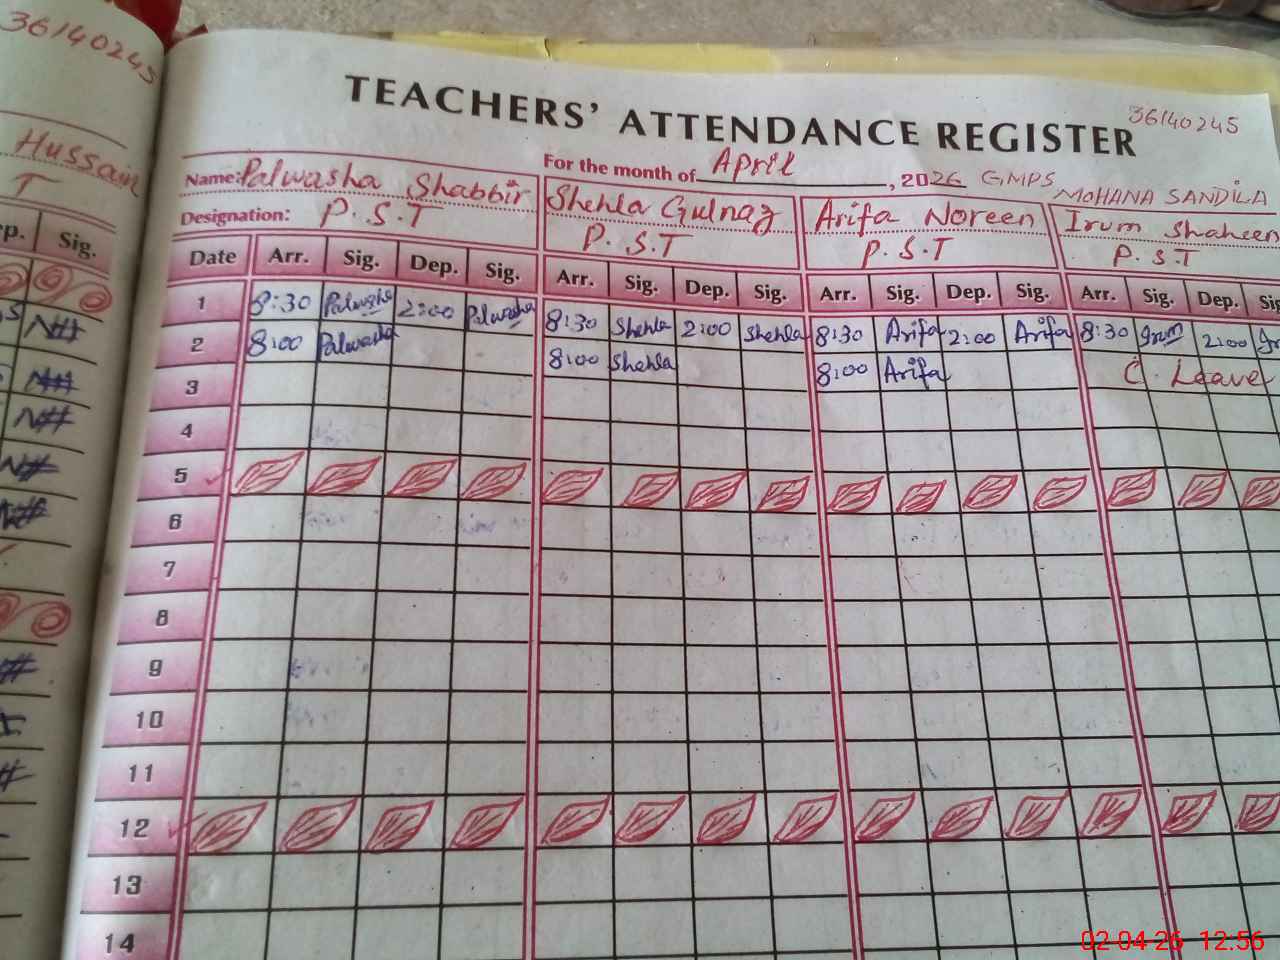 36140245
Hussain
T
ep. Sig.
TEACHERS' ATTENDANCE REGISTER
36140245
For the month of April, 2026 GMPS MOHANA SANDILA
Name: Palwasha Shabbir Shehla Gulnaz Arifa Noreen Irum Shaheen
Designation: P.S.T P.S.T P.S.T P.S.T
Date Arr. Sig. Dep. Sig. Arr. Sig. Dep. Sig. Arr. Sig. Dep. Sig. Arr. Sig. Dep. Sig
1 8:30 Palwasha 2:00 Palwasha 8:30 Shehla 2:00 Shehla 8:30 Arifa 2:00 Arifa 8:30 Irum 2:00
2 8:00 Palwasha 8:00 Shehla 8:00 Arifa C. Leave
3
4
5
6
7
8
9
10
11
12
13
14
02-04-26 12:56